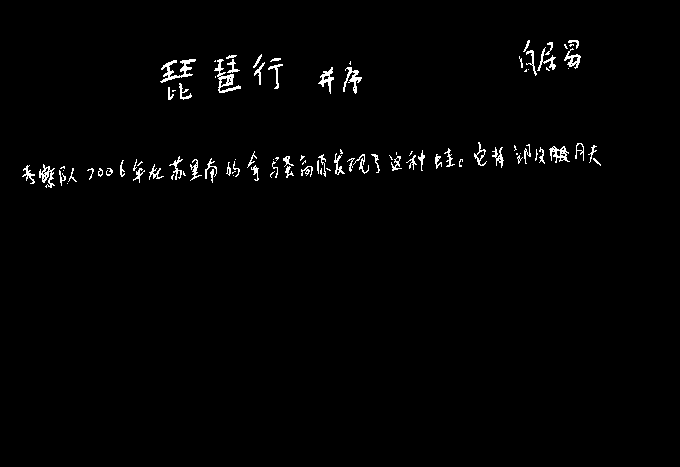 琵琶行 并序 白居易
考察队2006年在苏里南的拿骚高原发现了这种蛙。它背部皮肤